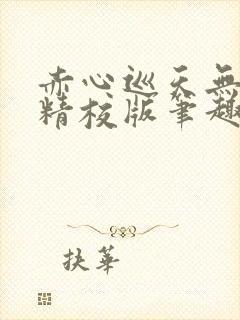 赤心巡天無
精校版筆趣
扶華